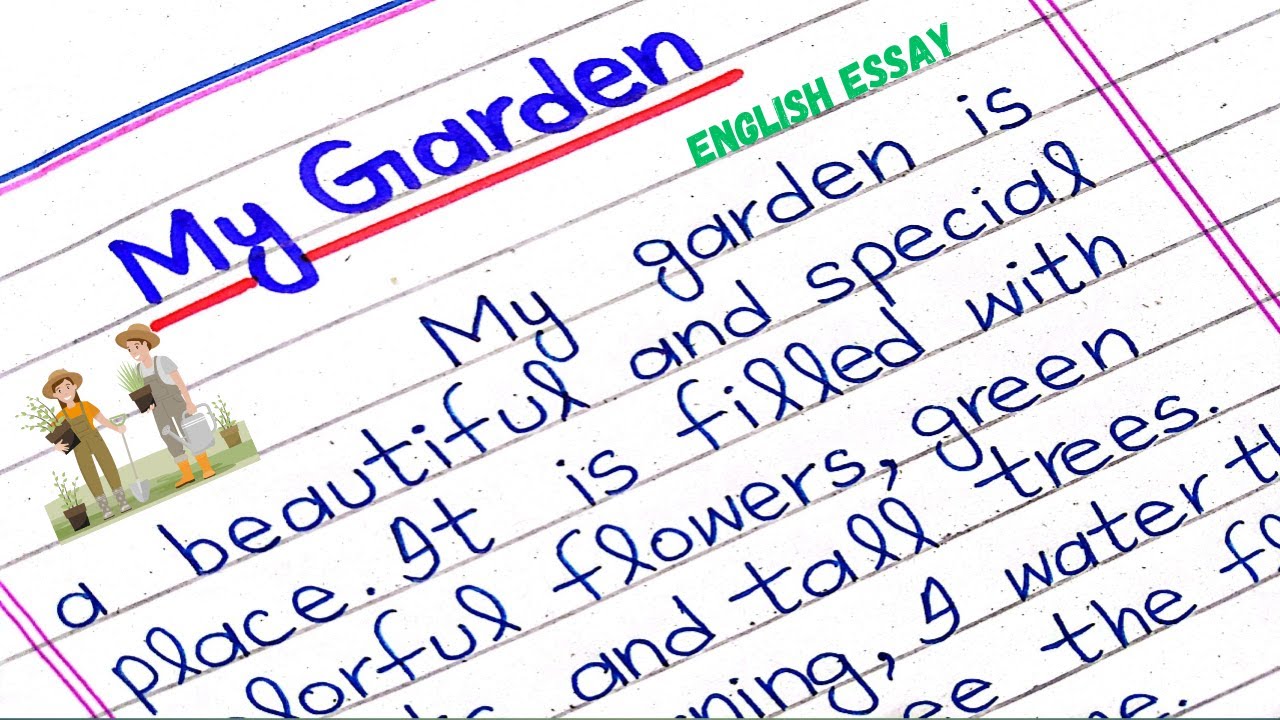 My Garden
ENGLISH ESSAY
My garden is
a beautiful and special
place. It is filled with
flowers, green
and tall trees.
I water
the